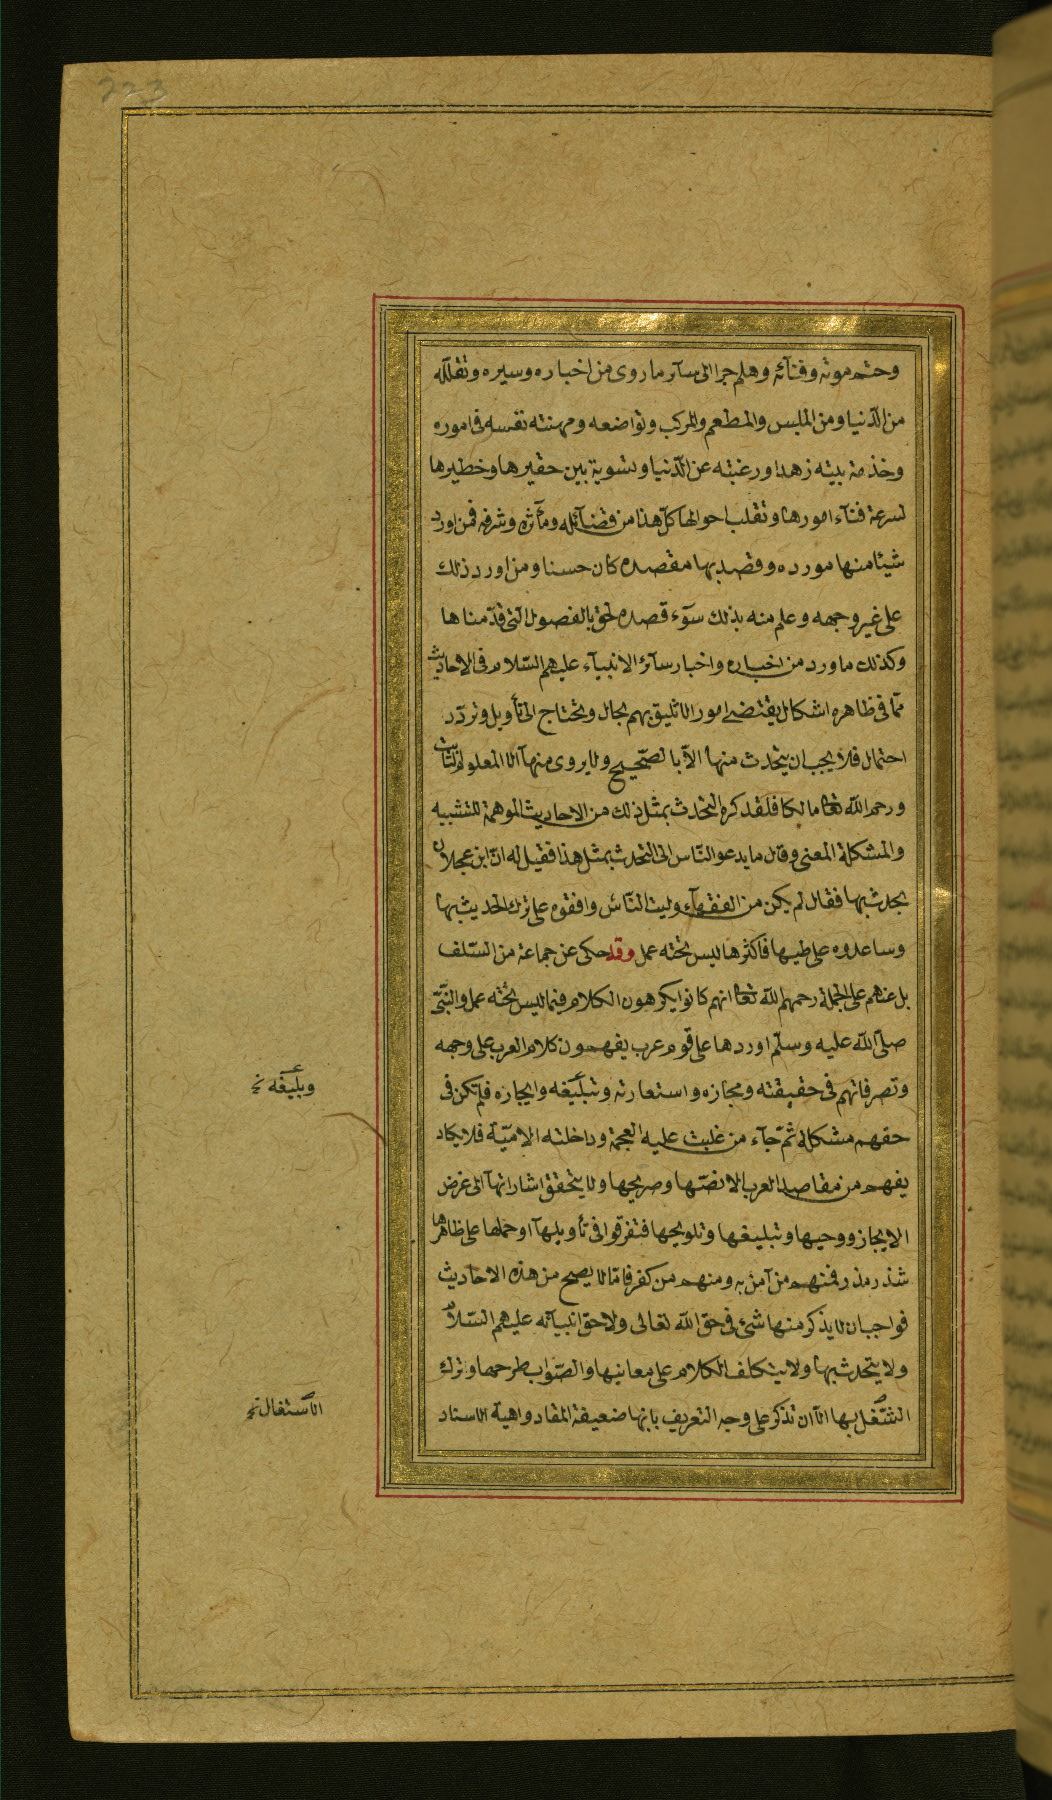 223
وحتم موته وفنآئه وهلم جرا الى سآئر ما روى من اخباره وسيره وتقلّله
من الدّنيا ومن الملبس والمطعم والمركب وتواضعه ومهنته نفسه فى اموره
وخدمة بيته زهدا ورغبته عن الدّنيا وتسوية بين حقيرها وخطيرها
لسرعة فنآء امورها وتقلب احوالها كلّ هذا من فضآئله ومآثره وشرفه فمن اورد
شيئا منها مورده وقصد بها مقصده كان حسنا ومن اورد ذلك
على غير وجهه وعلم منه بذلك سوٓء قصده لحق بالفصول الّتى قدّمناها
وكذلك ما ورد من اخباره واخبار سآئر الانبيآء عليهم السّلام فى الاحاديث
ممّا فى ظاهره اشكال يقتضى امورا لا تليق بهم بحال ويحتاج الى تأويل وتردّد
احتمال فلا يجب ان يتحدث منها الّا بالصّحيح ولا يروى منها الّا المعلوم الثّابت
ورحم اللّه تعالى مالكا فلقد كره التحدث بمثل ذلك من الاحاديث الموهمة للتشبيه
والمشكلة المعنى وقال ما يدعو النّاس الى التحدث بمثل هذا فقيل له انّ ابن عجلان
يحدث بها فقال لم يكن من الفقهآء وليت النّاس وافقوه على ترك الحديث بها
وساعدوه على طيها فاكثرها ليس تحته عمل وقد حكى عن جماعة من السّلف
بل عنهم على الجملة رحمهم اللّه تعالى انهم كانوا يكرهون الكلام فيما ليس تحته عمل والنّبىّ
صلّى اللّه عليه وسلّم اوردها على قوم عرب يفهمون كلام العرب على وجهه
وتصرفاتهم فى حقيقته ومجازه واستعارته وتبليغه وايجازه فلم تكن فى
حقهم مشكلة ثمّ جآء من غلبت عليه العجمة وداخلته الامّيّة فلا يكاد
يفهم من مقاصد العرب الا نصّها وصريحها ولا يتحقق اشاراتها الى غرض
الايجاز ووحيها وتبليغها وتلويحها فتفرقوا فى تأويلها او حملها على ظاهرها
شذر مذر فمنهم من آمن به ومنهم من كفر فامّا ما لا يصح من هذه الاحاديث
فواجب ان لا يذكر منها شئ فى حق اللّه تعالى ولا حق انبيآئه عليهم السّلام
ولا يتحدث بها ولا يتكلف الكلام على معانيها والصّواب طرحها وترك
الشّغل بها الّا ان تذكر على وجه التعريف بانها ضعيفة المقاد واهية الاسناد
وبليغه نخ
الاستغال نخ